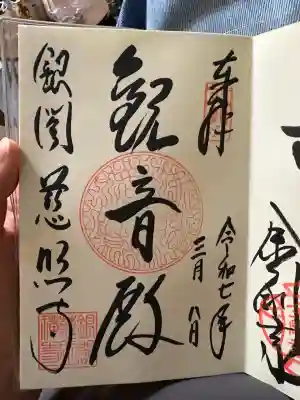 奉拝
令和七年
三月八日
観音殿
銀閣慈照寺